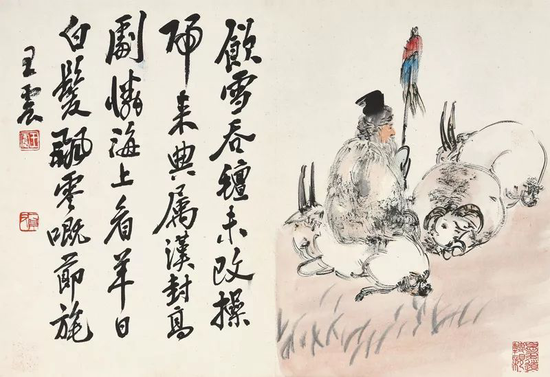 飲雪吞氈未改操
歸来典属漢封高
劇憐海上看羊日
白髮飄零嘅節旄
王震